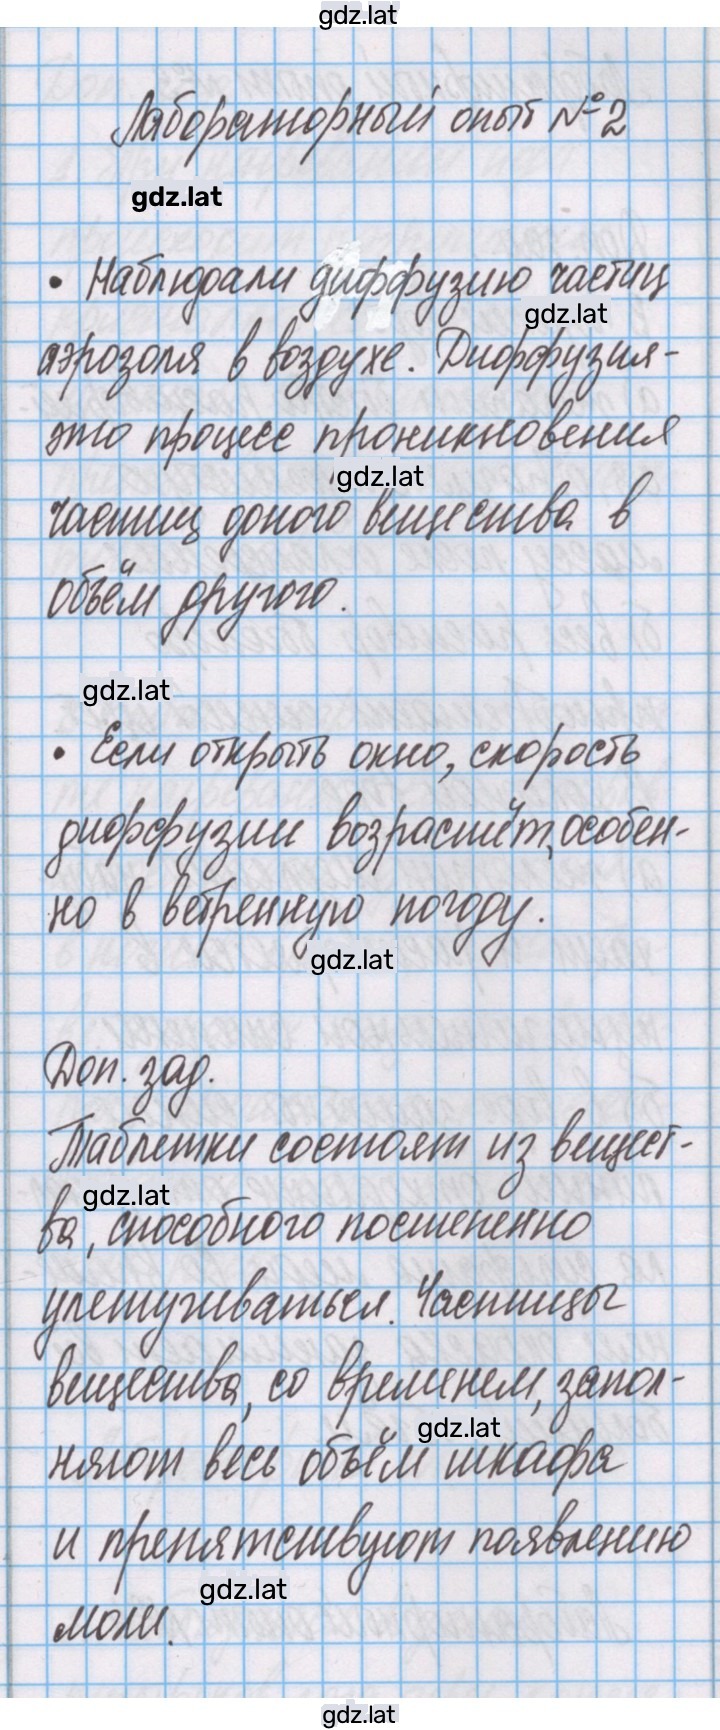 gdz.lat
Лабораторный опыт №2
gdz.lat
• Наблюдали диффузию частиц
gdz.lat
аэрозоля в воздухе. Диффузия-
это процесс проникновения
gdz.lat
частиц одного вещества в
объём другого.
gdz.lat
• Если открыть окно, скорость
диффузии возрастёт, особен-
но в ветренную погоду.
gdz.lat
Доп. зад.
Таблетки состоят из вещест-
gdz.lat
ва, способного постепенно
улетучиваться. Частицы
вещества, со временем, запол-
gdz.lat
няют весь объём шкафа
и препятствуют появлению
gdz.lat
моли.
gdz.lat